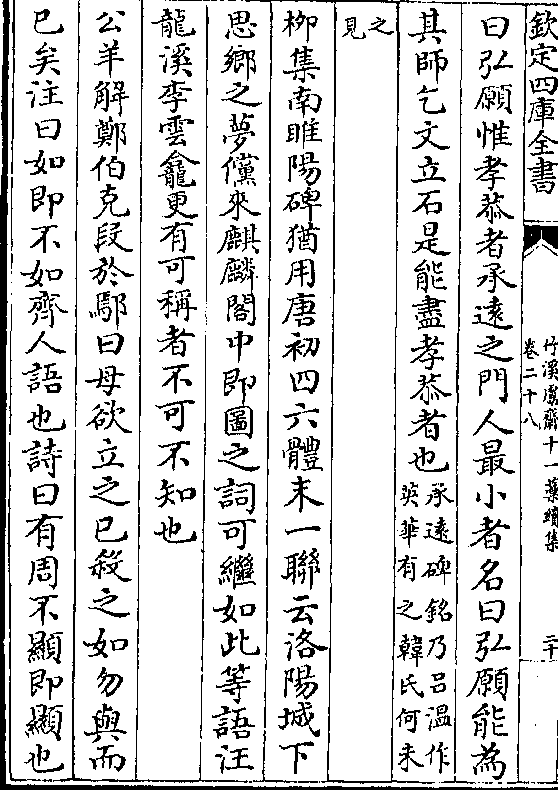 欽定四庫全書
竹溪鬳齋十一藁續集
卷二十八
二十
曰弘願惟孝恭者承遠之門人最小者名曰弘願能為
其師乞文立石是能盡孝恭者也承遠碑銘乃呂温作
英華有之韓氏何未
之
見
栁集南睢陽碑猶用唐初四六體末一聯云洛陽城下
思鄉之夢儻來麒麟閣中即圖之詞可繼如此等語汪
龍溪李雲龕更有可稱者不可不知也
公羊解鄭伯克段於鄢曰母欲立之巳殺之如勿與而
巳矣注曰如即不如齊人語也詩曰有周不顯即顯也